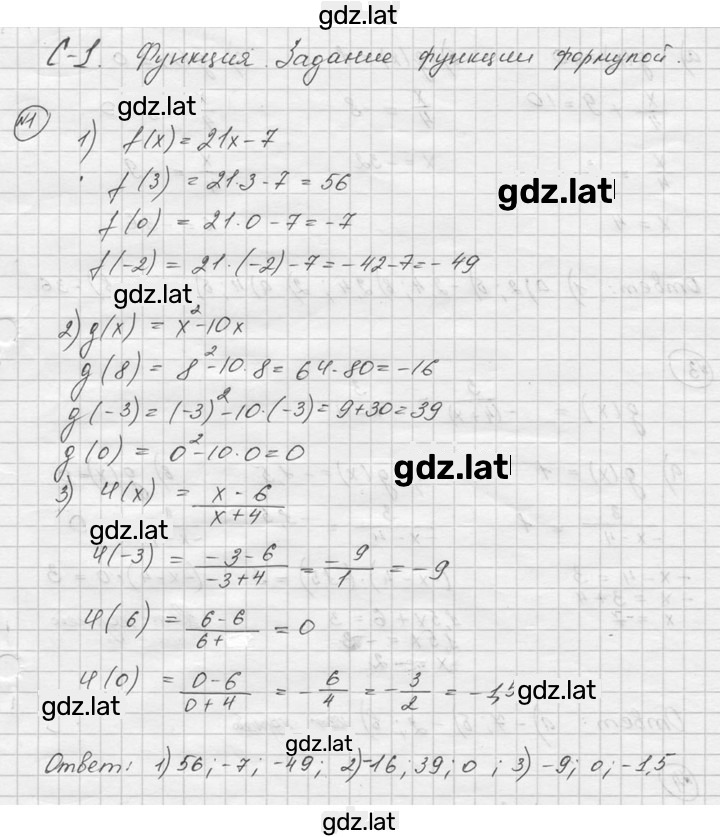 gdz.lat
С-1. Функция. Задание функции формулой.
gdz.lat
№1
1) f(x) = 21x-7
f(3) = 21·3-7 = 56
gdz.lat
f(0) = 21·0-7 = -7
f(-2) = 21·(-2)-7 = -42-7 = -49
gdz.lat
2) g(x) = x²-10x
g(8) = 8²-10·8 = 64-80 = -16
g(-3) = (-3)²-10·(-3) = 9+30 = 39
g(0) = 0²-10·0 = 0
gdz.lat
3) Ч(x) = x-6 / x+4
gdz.lat
Ч(-3) = -3-6 / -3+4 = -9 / 1 = -9
Ч(6) = 6-6 / 6+ = 0
Ч(0) = 0-6 / 0+4 = -6/4 = -3/2 = -1,5
gdz.lat
gdz.lat
gdz.lat
Ответ: 1) 56; -7; -49; 2) -16; 39; 0; 3) -9; 0; -1,5
gdz.lat